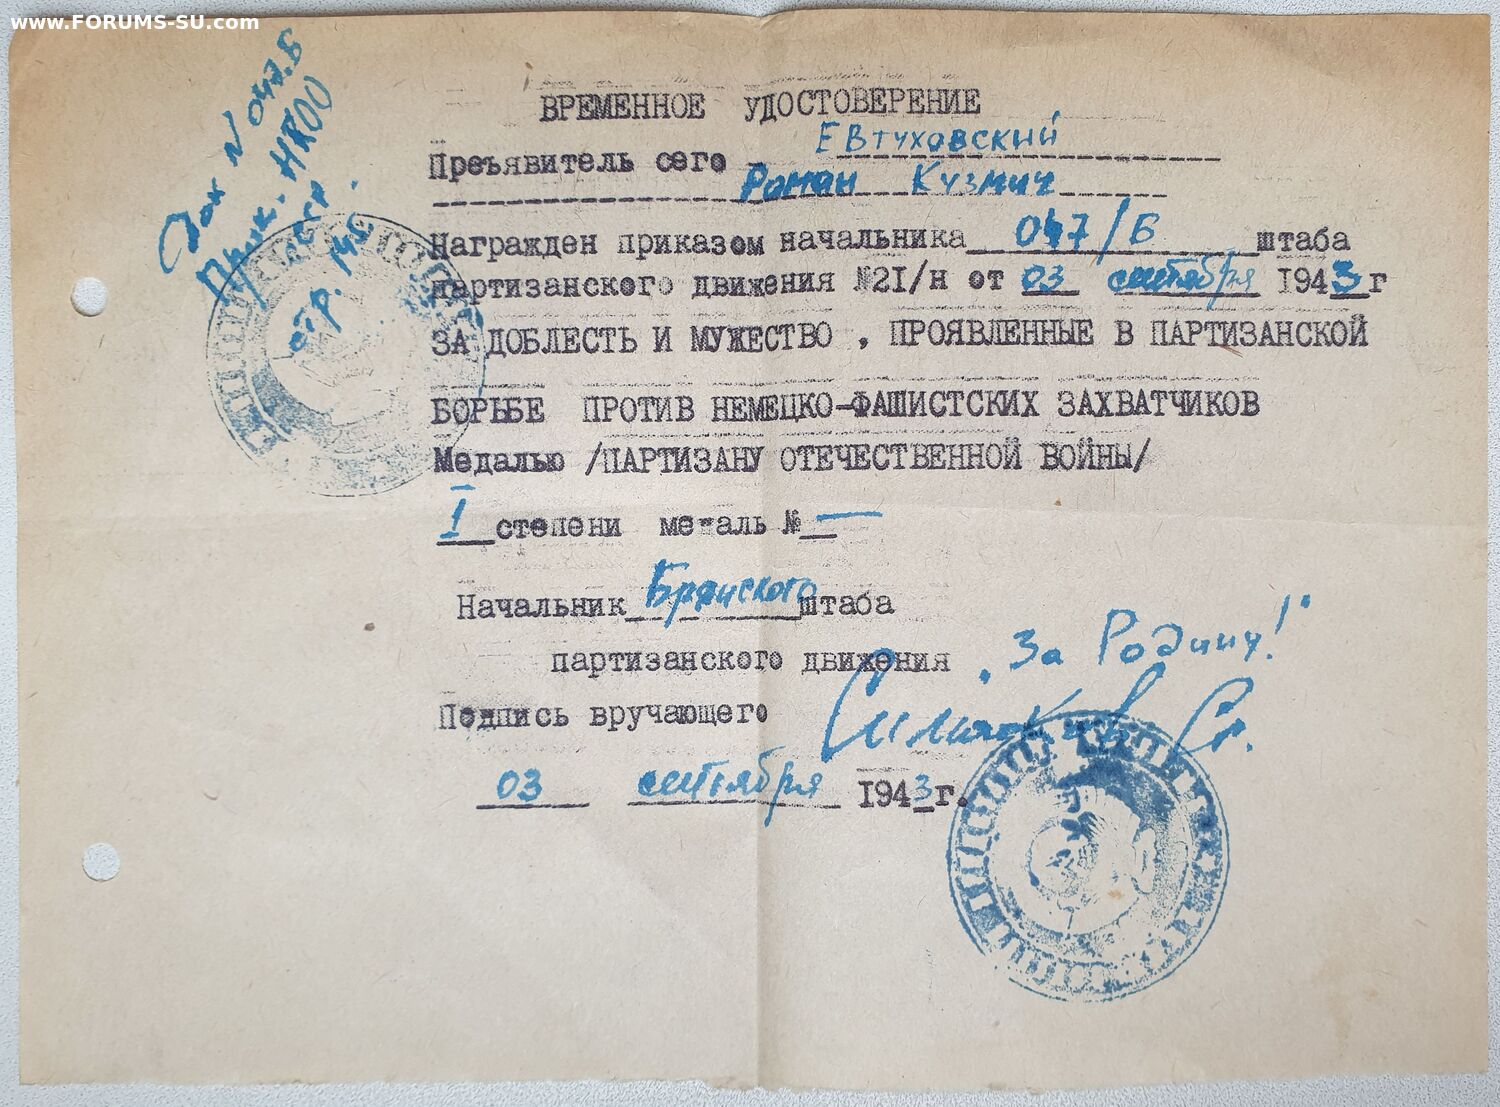 www.FORUMS-SU.com
Док № 047.Б
НКОО
стр. 145.
ВРЕМЕННОЕ УДОСТОВЕРЕНИЕ
Преъявитель сего Евтуховский
Роман Кузмич
Награжден приказом начальника 047/Б штаба
партизанского движения №2I/н от 03 сентября 1943г
ЗА ДОБЛЕСТЬ И МУЖЕСТВО , ПРОЯВЛЕННЫЕ В ПАРТИЗАНСКОЙ
БОРЬБЕ ПРОТИВ НЕМЕЦКО-ФАШИСТСКИХ ЗАХВАТЧИКОВ
Медалью /ПАРТИЗАНУ ОТЕЧЕСТВЕННОЙ ВОЙНЫ/
I степени медаль № —
Начальник Брянского штаба
партизанского движения
„За Родину!"
Подпись вручающего
03 сентября 1943г.